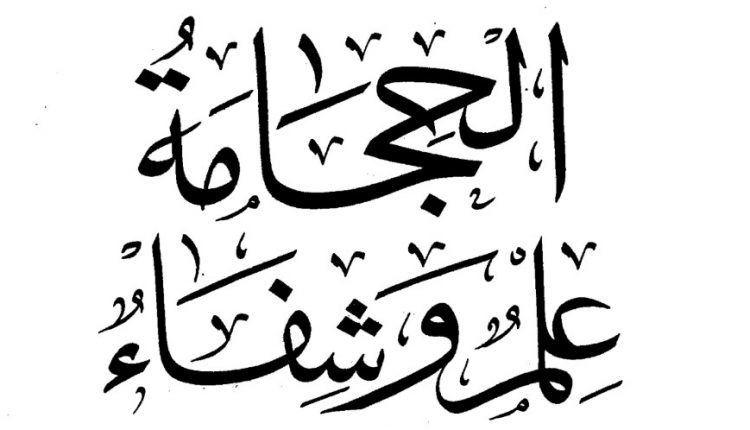 الْحِجَامَةُ
عِلْمٌ وَشِفَاءٌ